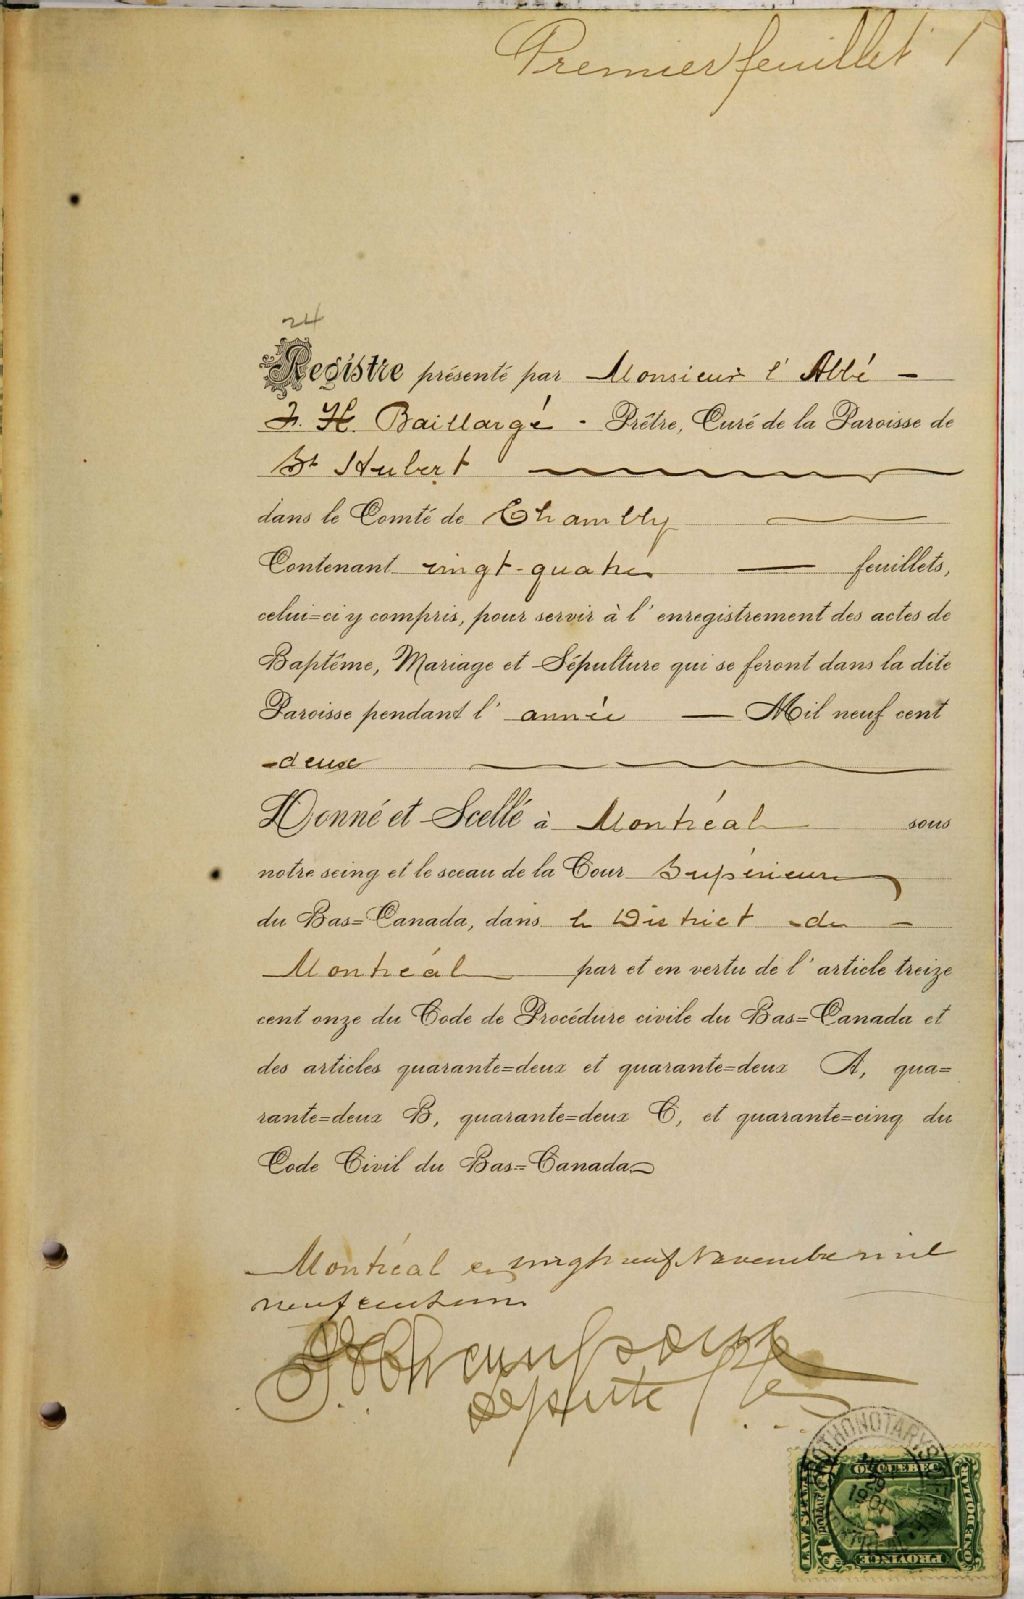 Premier feuillet 1
24
Registre présenté par Monsieur l'Abbé —
F. H. Baillargé - Prêtre, Curé de la Paroisse de
St Hubert
dans le Comté de Chambly
Contenant vingt-quatre — feuillets,
celui=ci y compris, pour servir à l'enregistrement des actes de
Baptême, Mariage et Sépulture qui se feront dans la dite
Paroisse pendant l'année — Mil neuf cent
deux
Donné et Scellé à Montréal sous
notre seing et le sceau de la Cour Supérieure
du Bas=Canada, dans le District de —
Montréal par et en vertu de l'article treize
cent onze du Code de Procédure civile du Bas=Canada et
des articles quarante=deux et quarante=deux A, qua=
rante=deux B, quarante=deux C, et quarante=cinq du
Code Civil du Bas=Canada
Montréal ce vingt neuf Novembre mil
neuf cent un
député
PROTHONOTARY'S
LAW STAMP
QUEBEC
ONE DOLLAR
PROVINCE